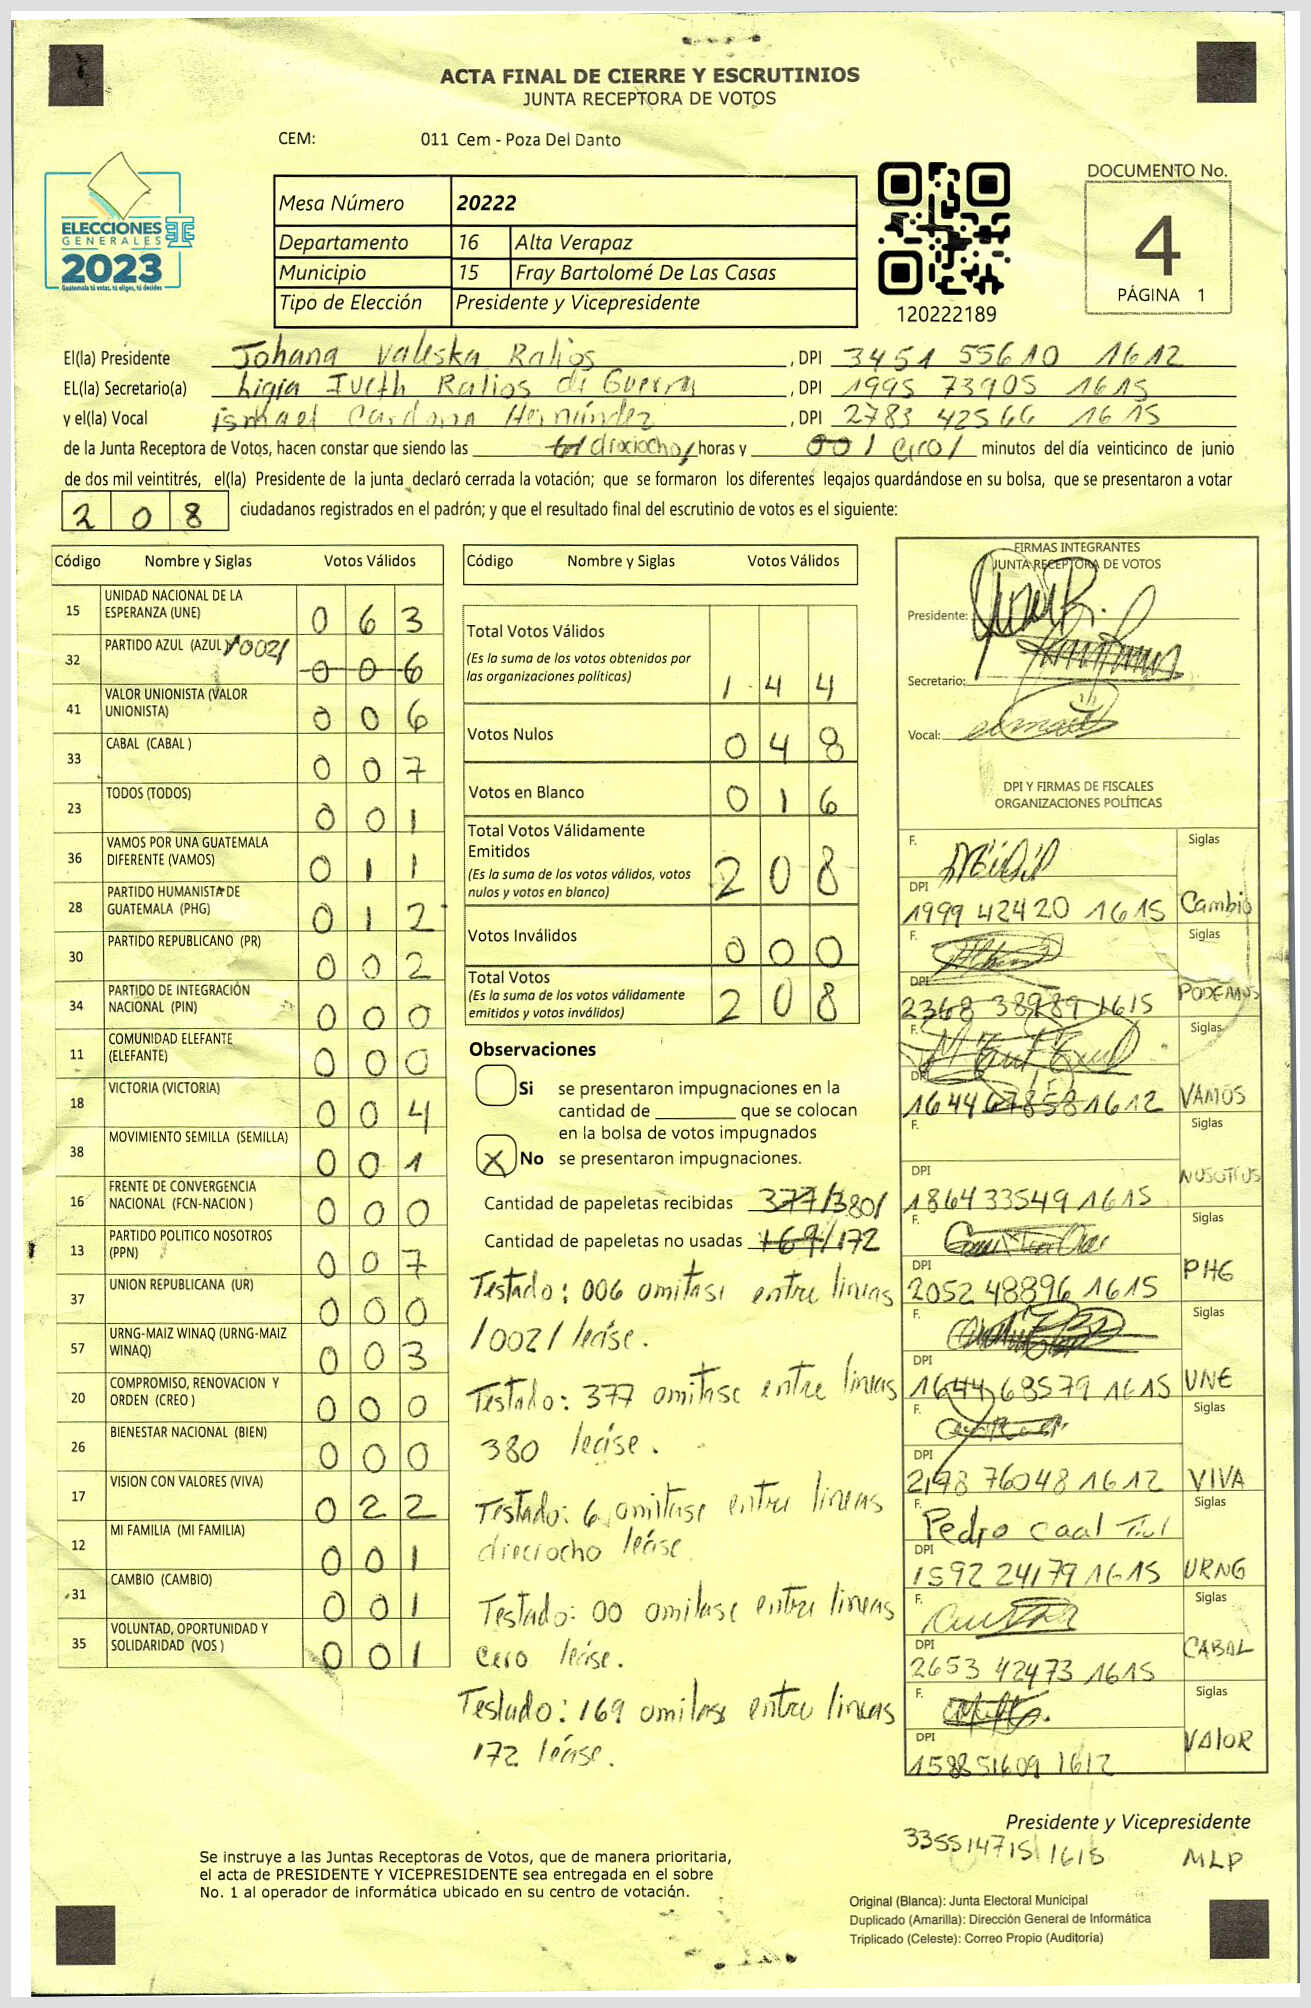 ACTA FINAL DE CIERRE Y ESCRUTINIOS
JUNTA RECEPTORA DE VOTOS
CEM: 011 Cem - Poza Del Danto
ELECCIONES
GENERALES
2023
Guatemala tú votas, tú eliges, tú decides
Mesa Número 20222
Departamento 16 Alta Verapaz
Municipio 15 Fray Bartolomé De Las Casas
Tipo de Elección Presidente y Vicepresidente
120222189
DOCUMENTO No.
4
PÁGINA 1
El(la) Presidente Johana Valeska Ralios, DPI 3451 55610 1612
EL(la) Secretario(a) Ligia Iveth Ralios de Guerra, DPI 1995 73905 1615
y el(la) Vocal ismael Cardona Hernández, DPI 2783 42566 1615
de la Junta Receptora de Votos, hacen constar que siendo las dieciocho/ horas y 00 / cero / minutos del día veinticinco de junio
de dos mil veintitrés, el(la) Presidente de la junta declaró cerrada la votación; que se formaron los diferentes legajos quardándose en su bolsa, que se presentaron a votar
208 ciudadanos registrados en el padrón; y que el resultado final del escrutinio de votos es el siguiente:
Código Nombre y Siglas Votos Válidos
15 UNIDAD NACIONAL DE LA ESPERANZA (UNE) 063
32 PARTIDO AZUL (AZUL) /002/ 006
41 VALOR UNIONISTA (VALOR UNIONISTA) 006
33 CABAL (CABAL ) 007
23 TODOS (TODOS) 001
36 VAMOS POR UNA GUATEMALA DIFERENTE (VAMOS) 011
28 PARTIDO HUMANISTA DE GUATEMALA (PHG) 012
30 PARTIDO REPUBLICANO (PR) 002
34 PARTIDO DE INTEGRACIÓN NACIONAL (PIN) 000
11 COMUNIDAD ELEFANTE (ELEFANTE) 000
18 VICTORIA (VICTORIA) 004
38 MOVIMIENTO SEMILLA (SEMILLA) 001
16 FRENTE DE CONVERGENCIA NACIONAL (FCN-NACION ) 000
13 PARTIDO POLITICO NOSOTROS (PPN) 007
37 UNION REPUBLICANA (UR) 000
57 URNG-MAIZ WINAQ (URNG-MAIZ WINAQ) 003
20 COMPROMISO, RENOVACION Y ORDEN (CREO ) 000
26 BIENESTAR NACIONAL (BIEN) 000
17 VISION CON VALORES (VIVA) 022
12 MI FAMILIA (MI FAMILIA) 001
31 CAMBIO (CAMBIO) 001
35 VOLUNTAD, OPORTUNIDAD Y SOLIDARIDAD (VOS ) 001
Código Nombre y Siglas Votos Válidos
Total Votos Válidos 144
(Es la suma de los votos obtenidos por
las organizaciones políticas)
Votos Nulos 048
Votos en Blanco 016
Total Votos Válidamente
Emitidos 208
(Es la suma de los votos válidos, votos
nulos y votos en blanco)
Votos Inválidos 000
Total Votos 208
(Es la suma de los votos válidamente
emitidos y votos inválidos)
Observaciones
Si se presentaron impugnaciones en la
cantidad de ________ que se colocan
en la bolsa de votos impugnados
X No se presentaron impugnaciones.
Cantidad de papeletas recibidas 377/380/
Cantidad de papeletas no usadas 169/172
Testado: 006 omitase entre lineas
/002/ léase.
Testado: 377 omitase entre lineas
380 léase.
Testado: 6 omitase entre lineas
dieciocho léase
Testado: 00 omitase entre lineas
cero léase.
Testado: 169 omitase entre lineas
172 léase.
FIRMAS INTEGRANTES
JUNTA RECEPTORA DE VOTOS
Presidente:
Secretario:
Vocal:
DPI Y FIRMAS DE FISCALES
ORGANIZACIONES POLÍTICAS
F. Siglas
DPI
1999 42420 1615 Cambio
F. Siglas
DPI
2368 38989 1615 PODEMOS
F. Siglas
DPI
1644 67858 1612 VAMOS
F. Siglas
DPI
1864 33549 1615 NOSOTROS
F. Siglas
DPI
2052 48896 1615 PHG
F. Siglas
DPI
1644 68579 1615 UNE
F. Siglas
DPI
2178 76048 1612 VIVA
F. Pedro Caal Siglas
DPI
1592 24179 1615 URNG
F. Siglas
DPI
2653 42473 1615 CABAL
F. Siglas
DPI
1588 51609 1612 VALOR
Presidente y Vicepresidente
33551 4715 1615 MLP
Se instruye a las Juntas Receptoras de Votos, que de manera prioritaria,
el acta de PRESIDENTE Y VICEPRESIDENTE sea entregada en el sobre
No. 1 al operador de informática ubicado en su centro de votación.
Original (Blanca): Junta Electoral Municipal
Duplicado (Amarilla): Dirección General de Informática
Triplicado (Celeste): Correo Propio (Auditoría)